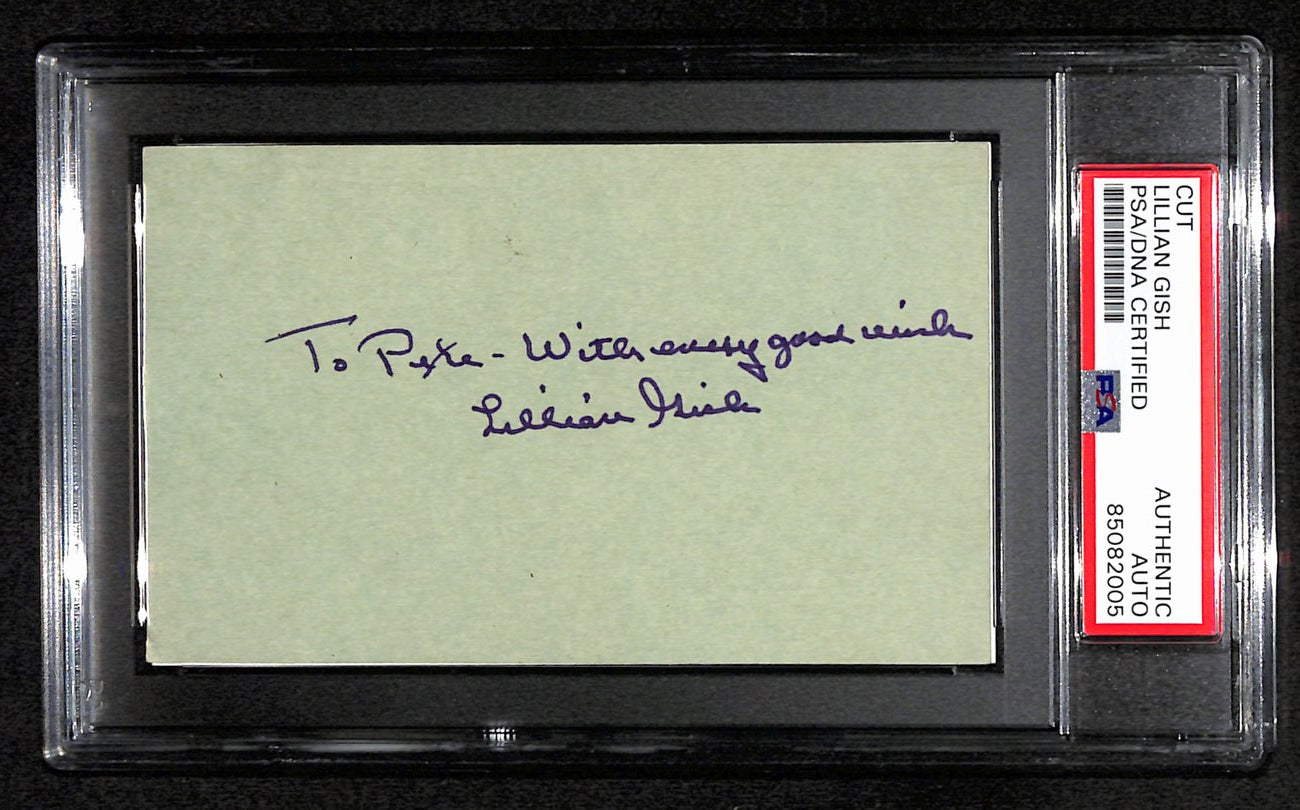 To Pete - With every good wish
Lillian Gish
CUT
LILLIAN GISH
PSA/DNA CERTIFIED
PSA
AUTHENTIC
AUTO
85082005